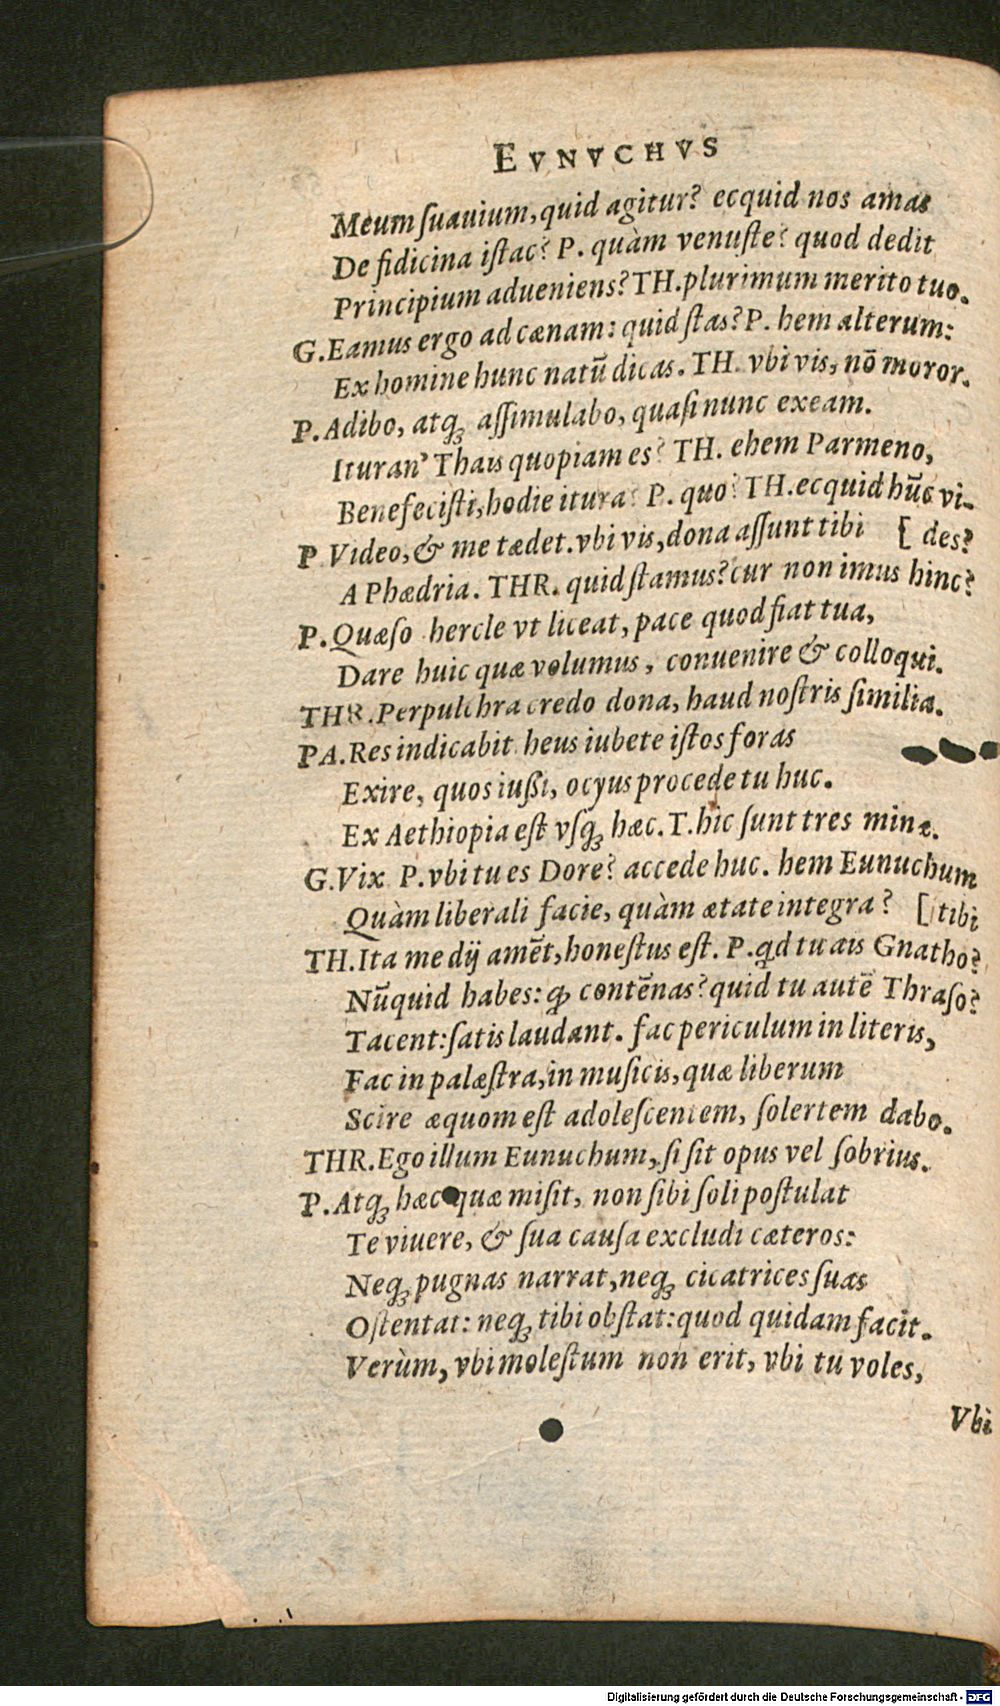 EVNVCHVS
Meum ſuauium, quid agitur? ecquid nos amas
De fidicina iſtac? P. quàm venuſte? quod dedit
Principium adueniens? TH. plurimum merito tuo.
G. Eamus ergo ad cœnam: quid ſtas? P. hem alterum:
Ex homine hunc natū dicas. TH. vbi vis, nō moror.
P. Adibo, atq; aſſimulabo, quaſi nunc exeam.
Ituran' Thais quopiam es? TH. ehem Parmeno,
Benefeciſti, hodie itura? P. quo? TH. ecquid hūc vi-
P Video, & me tædet. vbi vis, dona aſſunt tibi [ des?
A Phædria. THR. quid ſtamus? cur non imus hinc?
P. Quæſo hercle vt liceat, pace quod fiat tua,
Dare huic quæ volumus, conuenire & colloqui.
THR. Perpulchra credo dona, haud noſtris ſimilia.
PA. Res indicabit. heus iubete iſtos foras
Exire, quos iußi, ocyus procede tu huc.
Ex Aethiopia eſt vſq; hæc. T. hic ſunt tres minæ.
G. Vix P. vbi tu es Dore? accede huc. hem Eunuchum
Quàm liberali facie, quàm ætate integra? [ tibi
TH. Ita me dij amēt, honeſtus eſt. P. qd tu ais Gnatho?
Nūquid habes: q; contēnas? quid tu autē Thraſo?
Tacent: ſatis laudant. fac periculum in literis,
Fac in palæſtra, in muſicis, quæ liberum
Scire æquom eſt adoleſcentem, ſolertem dabo.
THR. Ego illum Eunuchum, ſi ſit opus vel ſobrius.
P. Atq; hæc quæ miſit, non ſibi ſoli poſtulat
Te viuere, & ſua cauſa excludi cæteros:
Neq; pugnas narrat, neq; cicatrices ſuas
Oſtentat: neq; tibi obſtat: quod quidam facit.
Verùm, vbi moleſtum non erit, vbi tu voles,
Vbi
Digitalisierung gefördert durch die Deutsche Forschungsgemeinschaft - DFG